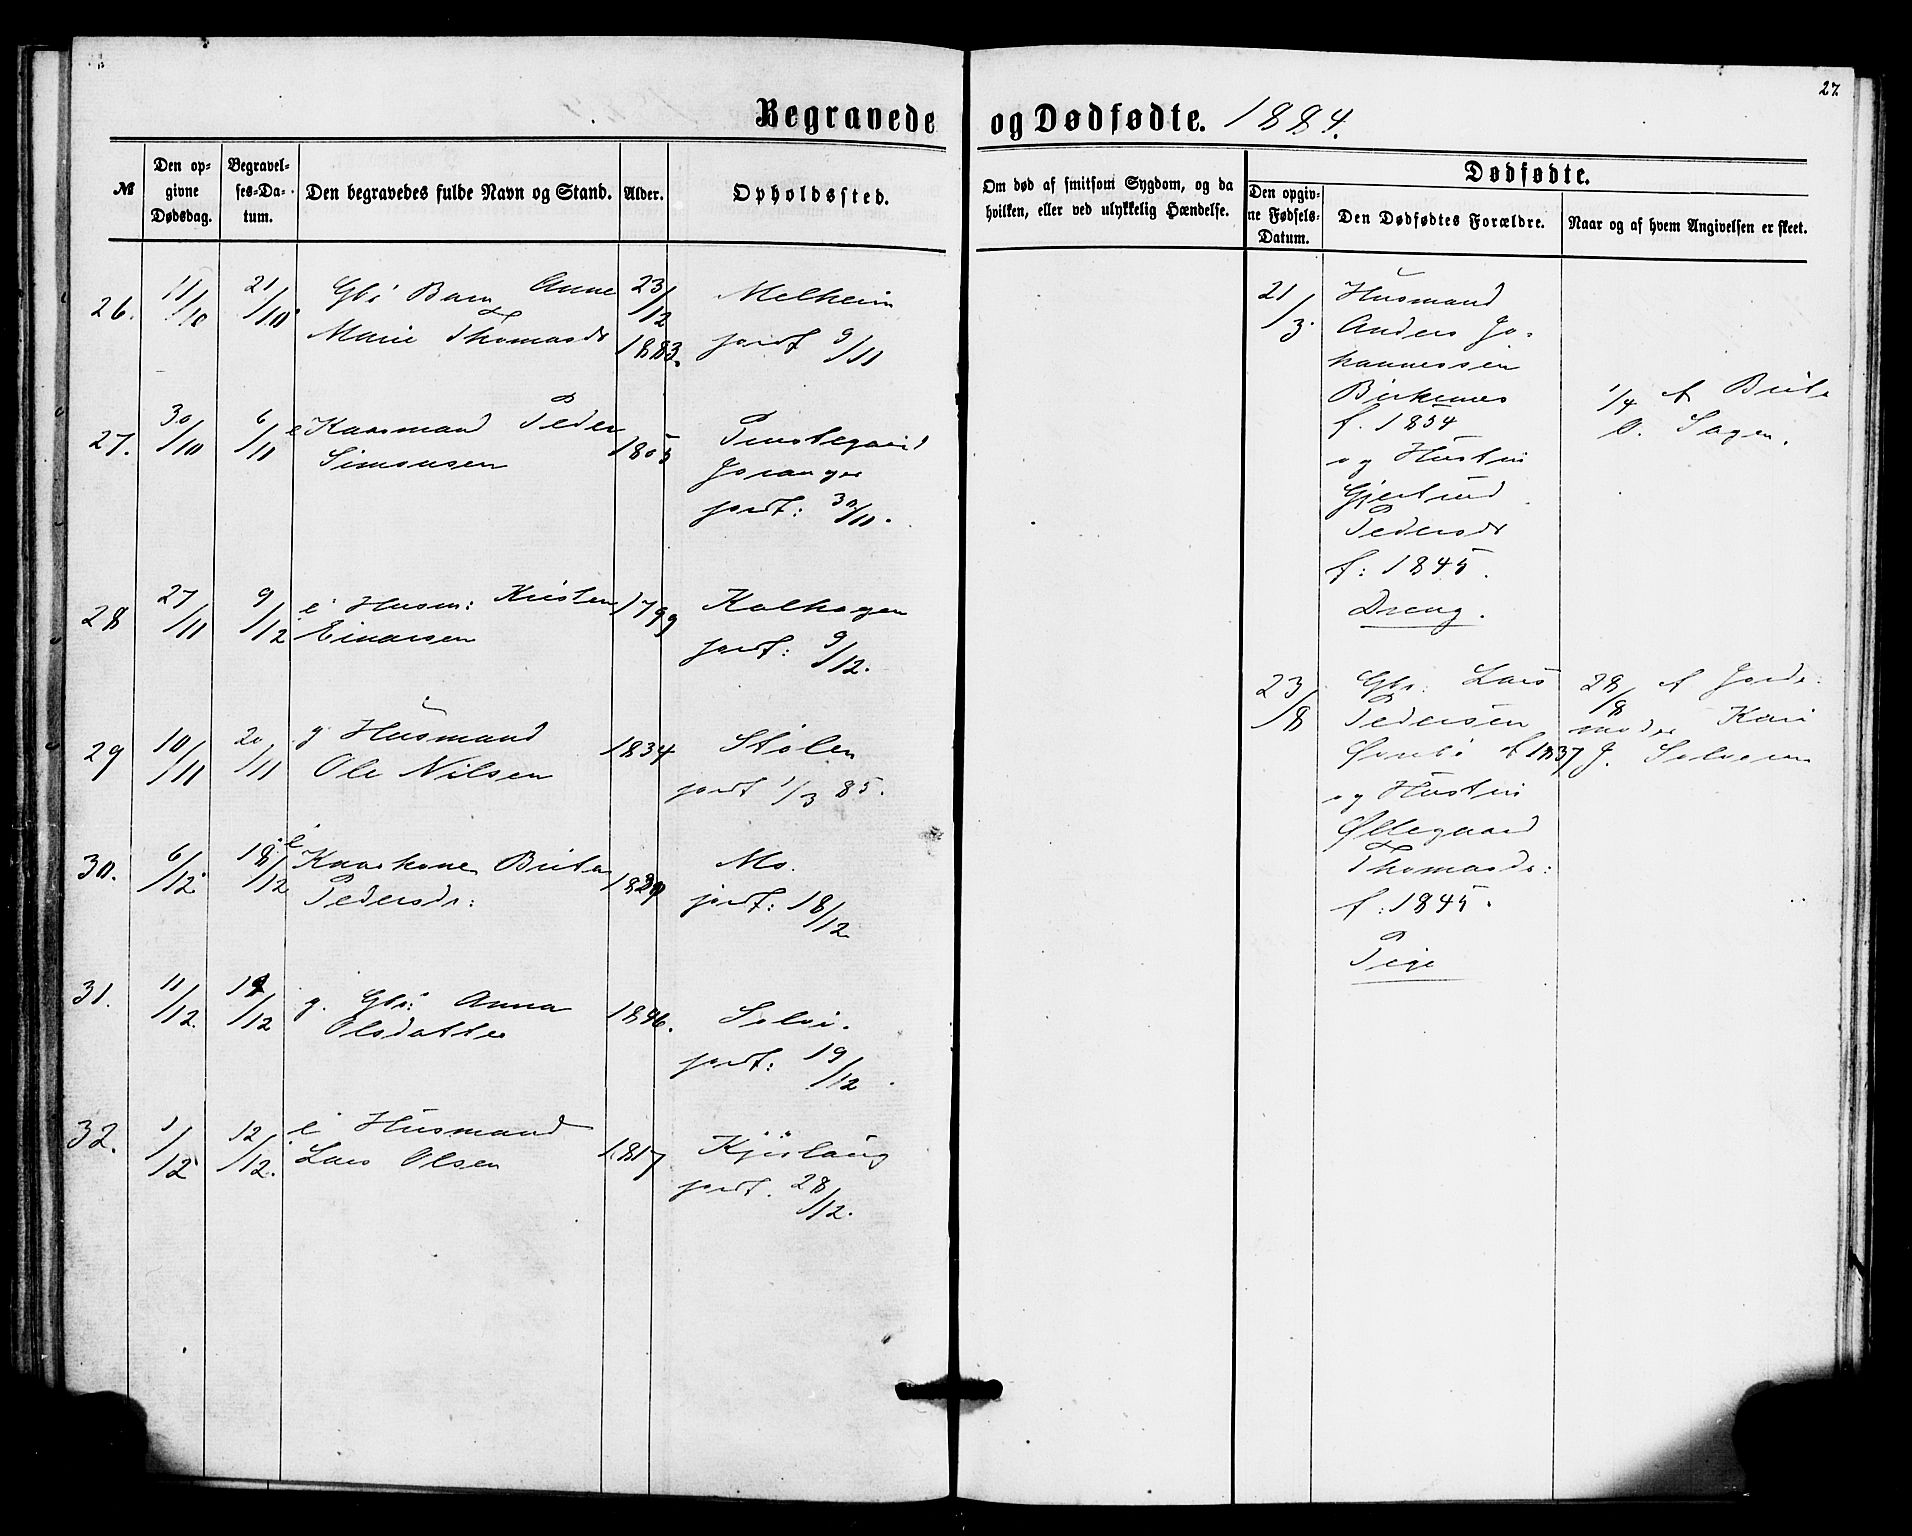 27
Begravede og Dødfødte. 1884.
№
Den op-
givne
Dødsdag.
Begravel-
ses-Da-
tum.
Den begravedes fulde Navn og Stand.
Alder.
Opholdssted.
Om død af smitsom Sygdom, og da
hvilken, eller ved ulykkelig Hændelse.
Dødfødte.
Den opgiv-
ne Fødsels-
Datum.
Den Dødfødtes Forældre.
Naar og af hvem Angivelsen er skeet.
26. 11/10 21/10 Gbr Barn Anne 23/12 Melheim
Marie Thomasdr 1883. jordf 9/11
27. 30/10 6/11 e Kaarmand Peder 1805
Simonsen
Joranger
jordf: 30/11.
28 27/11 9/12 e Husm: Kristen 1799 Kalhagen
Einarsen jordf: 9/12.
29 10/11 20/11 g Husmand 1834 Stølen
Ole Nilsen jordf 1/3 85.
30. 6/12 18/12 e Kaarkone Brita Mo.
Pedersdr: jordf: 18/12
31. 11/12. /12 g. Gbr: Anna 1846. Selsi.
Olsdatter jordf: 19/12
32. 1/12 12/12. e Husmand 1817
Lars Olsen jordf. 28/12.
21/3. Husmand
Anders Jo-
hannessen
Birkenes
f. 1854
og Hustru
Gjertrud
Pedersdr
f: 1845.
Dreng.
1/4 af Brita
O. Hagen.
23/8 Gbr: Lars
Pedersen
f 1837
og Hustru
Øllegaard
Thomasdr:
f: 1845.
Pige
28/8 af Jorde-
moder Kari
J.